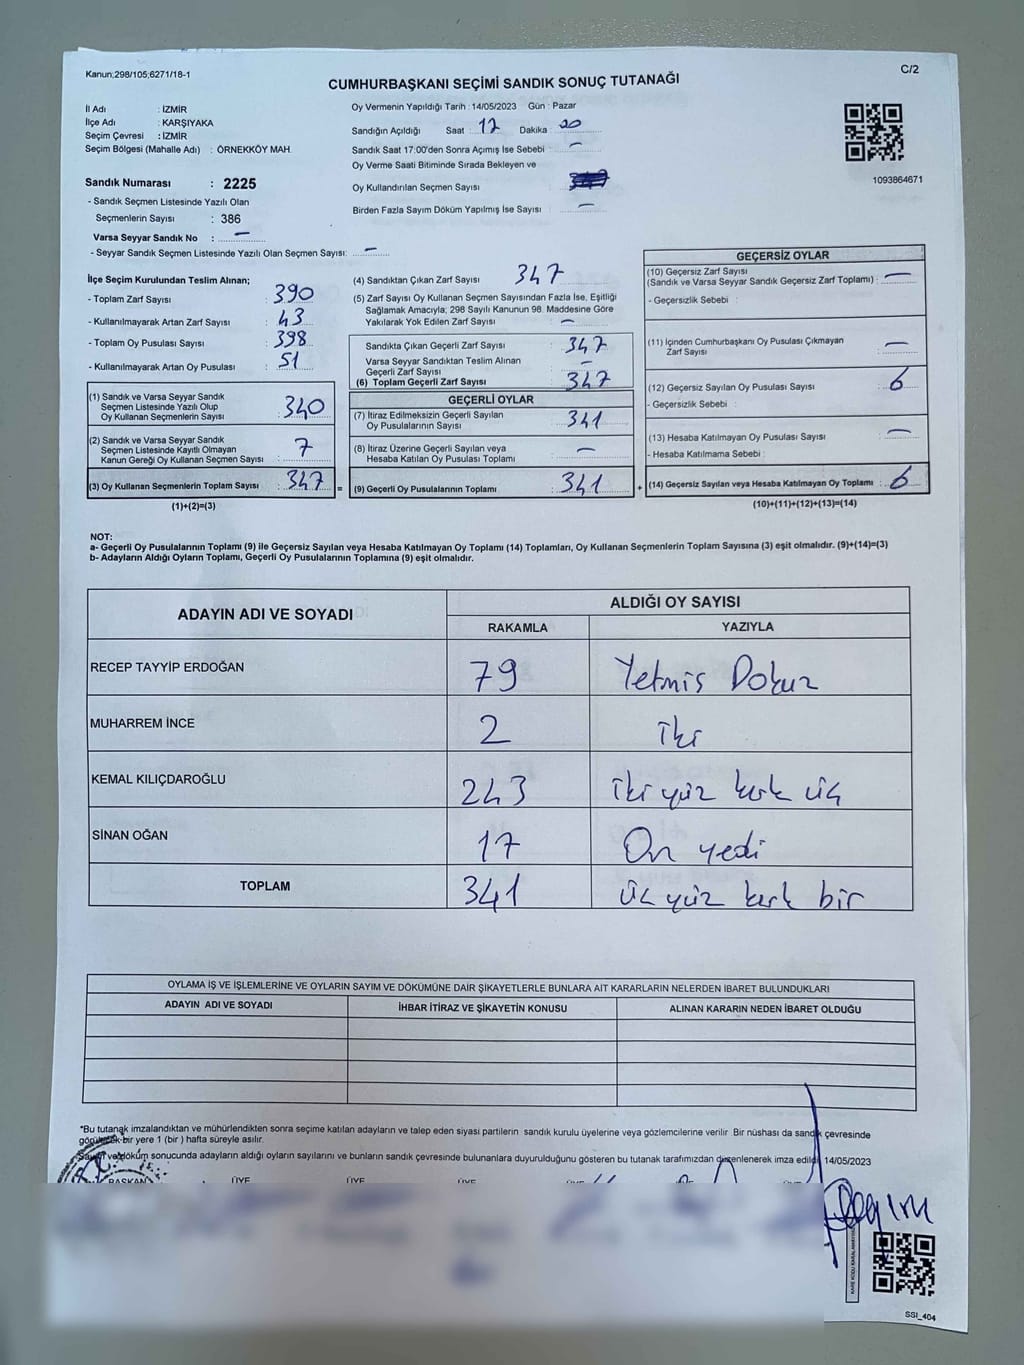 Kanun;298/105;6271/18-1
C/2
CUMHURBAŞKANI SEÇİMİ SANDIK SONUÇ TUTANAĞI
İl Adı : İZMİR
İlçe Adı : KARŞIYAKA
Seçim Çevresi : İZMİR
Seçim Bölgesi (Mahalle Adı) : ÖRNEKKÖY MAH.
Sandık Numarası : 2225
- Sandık Seçmen Listesinde Yazılı Olan
Seçmenlerin Sayısı : 386
Varsa Seyyar Sandık No : -
- Seyyar Sandık Seçmen Listesinde Yazılı Olan Seçmen Sayısı: -
Oy Vermenin Yapıldığı Tarih : 14/05/2023 Gün : Pazar
Sandığın Açıldığı Saat : 17 Dakika : 20
Sandık Saat 17:00'den Sonra Açımış İse Sebebi : -
Oy Verme Saati Bitiminde Sırada Bekleyen ve
Oy Kullandırılan Seçmen Sayısı :
Birden Fazla Sayım Döküm Yapılmış İse Sayısı : -
1093864671
İlçe Seçim Kurulundan Teslim Alınan;
- Toplam Zarf Sayısı : 390
- Kullanılmayarak Artan Zarf Sayısı : 43
- Toplam Oy Pusulası Sayısı : 398
- Kullanılmayarak Artan Oy Pusulası : 51
(1) Sandık ve Varsa Seyyar Sandık
Seçmen Listesinde Yazılı Olup
Oy Kullanan Seçmenlerin Sayısı : 340
(2) Sandık ve Varsa Seyyar Sandık
Seçmen Listesinde Kayıtlı Olmayan
Kanun Gereği Oy Kullanan Seçmen Sayısı : 7
(3) Oy Kullanan Seçmenlerin Toplam Sayısı : 347 =
(1)+(2)=(3)
(4) Sandıktan Çıkan Zarf Sayısı : 347
(5) Zarf Sayısı Oy Kullanan Seçmen Sayısından Fazla İse, Eşitliği
Sağlamak Amacıyla; 298 Sayılı Kanunun 98. Maddesine Göre
Yakılarak Yok Edilen Zarf Sayısı : -
Sandıkta Çıkan Geçerli Zarf Sayısı : 347
Varsa Seyyar Sandıktan Teslim Alınan
Geçerli Zarf Sayısı : -
(6) Toplam Geçerli Zarf Sayısı : 347
GEÇERLİ OYLAR
(7) İtiraz Edilmeksizin Geçerli Sayılan
Oy Pusulalarının Sayısı : 341
(8) İtiraz Üzerine Geçerli Sayılan veya
Hesaba Katılan Oy Pusulası Toplamı : -
(9) Geçerli Oy Pusulalarının Toplamı : 341 +
GEÇERSİZ OYLAR
(10) Geçersiz Zarf Sayısı
(Sandık ve Varsa Seyyar Sandık Geçersiz Zarf Toplamı) : -
- Geçersizlik Sebebi :
(11) İçinden Cumhurbaşkanı Oy Pusulası Çıkmayan
Zarf Sayısı : -
(12) Geçersiz Sayılan Oy Pusulası Sayısı : 6
- Geçersizlik Sebebi :
(13) Hesaba Katılmayan Oy Pusulası Sayısı : -
- Hesaba Katılmama Sebebi :
(14) Geçersiz Sayılan veya Hesaba Katılmayan Oy Toplamı : 6
(10)+(11)+(12)+(13)=(14)
NOT:
a- Geçerli Oy Pusulalarının Toplamı (9) ile Geçersiz Sayılan veya Hesaba Katılmayan Oy Toplamı (14) Toplamları, Oy Kullanan Seçmenlerin Toplam Sayısına (3) eşit olmalıdır. (9)+(14)=(3)
b- Adayların Aldığı Oyların Toplamı, Geçerli Oy Pusulalarının Toplamına (9) eşit olmalıdır.
ADAYIN ADI VE SOYADI
ALDIĞI OY SAYISI
RAKAMLA YAZIYLA
RECEP TAYYİP ERDOĞAN 79 Yetmiş Dokuz
MUHARREM İNCE 2 iki
KEMAL KILIÇDAROĞLU 243 iki yüz kırk üç
SİNAN OĞAN 17 On yedi
TOPLAM 341 üç yüz kırk bir
OYLAMA İŞ VE İŞLEMLERİNE VE OYLARIN SAYIM VE DÖKÜMÜNE DAİR ŞİKAYETLERLE BUNLARA AİT KARARLARIN NELERDEN İBARET BULUNDUKLARI
ADAYIN ADI VE SOYADI İHBAR İTİRAZ VE ŞİKAYETİN KONUSU ALINAN KARARIN NEDEN İBARET OLDUĞU
*Bu tutanak imzalandıktan ve mühürlendikten sonra seçime katılan adayların ve talep eden siyasi partilerin sandık kurulu üyelerine veya gözlemcilerine verilir. Bir nüshası da sandık çevresinde
görülecek bir yere 1 (bir) hafta süreyle asılır.
Sayım ve döküm sonucunda adayların aldığı oyların sayılarını ve bunların sandık çevresinde bulunanlara duyurulduğunu gösteren bu tutanak tarafımızdan düzenlenerek imza edildi. 14/05/2023
BAŞKAN ÜYE ÜYE ÜYE
SSİ_404